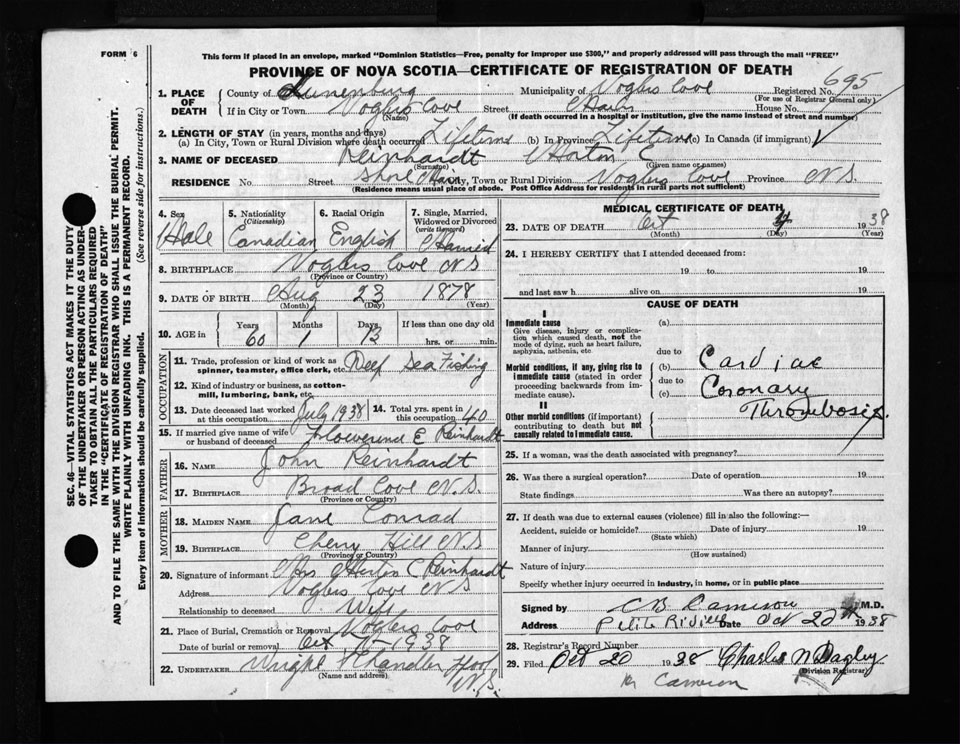 FORM 6
This form if placed in an envelope, marked "Dominion Statistics—Free, penalty for improper use $300," and properly addressed will pass through the mail "FREE"
PROVINCE OF NOVA SCOTIA—CERTIFICATE OF REGISTRATION OF DEATH
SEC. 46—VITAL STATISTICS ACT MAKES IT THE DUTY
OF THE UNDERTAKER OR PERSON ACTING AS UNDER-
TAKER TO OBTAIN ALL THE PARTICULARS REQUIRED
IN THE "CERTIFICATE OF REGISTRATION OF DEATH"
AND TO FILE THE SAME WITH THE DIVISION REGISTRAR WHO SHALL ISSUE THE BURIAL PERMIT.
WRITE PLAINLY WITH UNFADING INK. THIS IS A PERMANENT RECORD.
Every item of information should be carefully supplied. (See reverse side for instructions.)
1. PLACE OF DEATH County of Lunenburg Municipality of Voglers Cove Registered No. 695
(For use of Registrar General only)
If in City or Town Voglers Cove Street Main House No.
(Name) (If death occurred in a hospital or institution, give the name instead of street and number)
2. LENGTH OF STAY (in years, months and days)
(a) In City, Town or Rural Division where death occurred Lifetime (b) In Province Lifetime (c) In Canada (if immigrant)
3. NAME OF DECEASED Reinhardt Horton C
(Surname) (Given name or names)
RESIDENCE No. Street Shore Main City, Town or Rural Division Voglers Cove Province N.S.
(Residence means usual place of abode. Post Office Address for residents in rural parts not sufficient)
4. Sex Male
5. Nationality (Citizenship) Canadian
6. Racial Origin English
7. Single, Married, Widowed or Divorced (write the word) Married
8. BIRTHPLACE Voglers Cove N S
(Province or Country)
9. DATE OF BIRTH Aug 23 1878
(Month) (Day) (Year)
10. AGE in Years 60 Months 1 Days 13 If less than one day old hrs. or min.
OCCUPATION
11. Trade, profession or kind of work as spinner, teamster, office clerk, etc. Deep Sea Fishing
12. Kind of industry or business, as cotton-mill, lumbering, bank, etc.
13. Date deceased last worked at this occupation July 1938
14. Total yrs. spent in this occupation 40
15. If married give name of wife or husband of deceased E Reinhardt
FATHER
16. NAME John Reinhardt
17. BIRTHPLACE Broad Cove N.S.
(Province or Country)
MOTHER
18. MAIDEN NAME Jane Conrad
19. BIRTHPLACE Cherry Hill N S
(Province or Country)
20. Signature of informant Mrs Horton C Reinhardt
Address Voglers Cove N S
Relationship to deceased Wife
21. Place of Burial, Cremation or Removal Voglers Cove
Date of burial or removal Oct 1938
22. UNDERTAKER Wright Chandler
(Name and address) N.S.
MEDICAL CERTIFICATE OF DEATH
23. DATE OF DEATH Oct 1938
(Month) (Day) (Year)
24. I HEREBY CERTIFY that I attended deceased from:
19 to 19
and last saw h alive on 19
CAUSE OF DEATH
I
Immediate cause (a)
Give disease, injury or complication which caused death, not the mode of dying, such as heart failure, asphyxia, asthenia, etc
due to
Morbid conditions, if any, giving rise to immediate cause (stated in order proceeding backwards from immediate cause). (b) Cardiac
due to
(c) Coronary
Thrombosis.
II
Other morbid conditions (if important) contributing to death but not causally related to immediate cause.
25. If a woman, was the death associated with pregnancy?
26. Was there a surgical operation? Date of operation 19
State findings Was there an autopsy?
27. If death was due to external causes (violence) fill in also the following:—
Accident, suicide or homicide? Date of injury 19
(State which)
Manner of injury
(How sustained)
Nature of injury
Specify whether injury occurred in industry, in home, or in public place
Signed by C B Cameron M.D.
Address Petite Riviere Date Oct 20 1938
28. Registrar's Record Number
29. Filed Oct 20 1938 Charles N Dagley
(Division Registrar)
Cameron